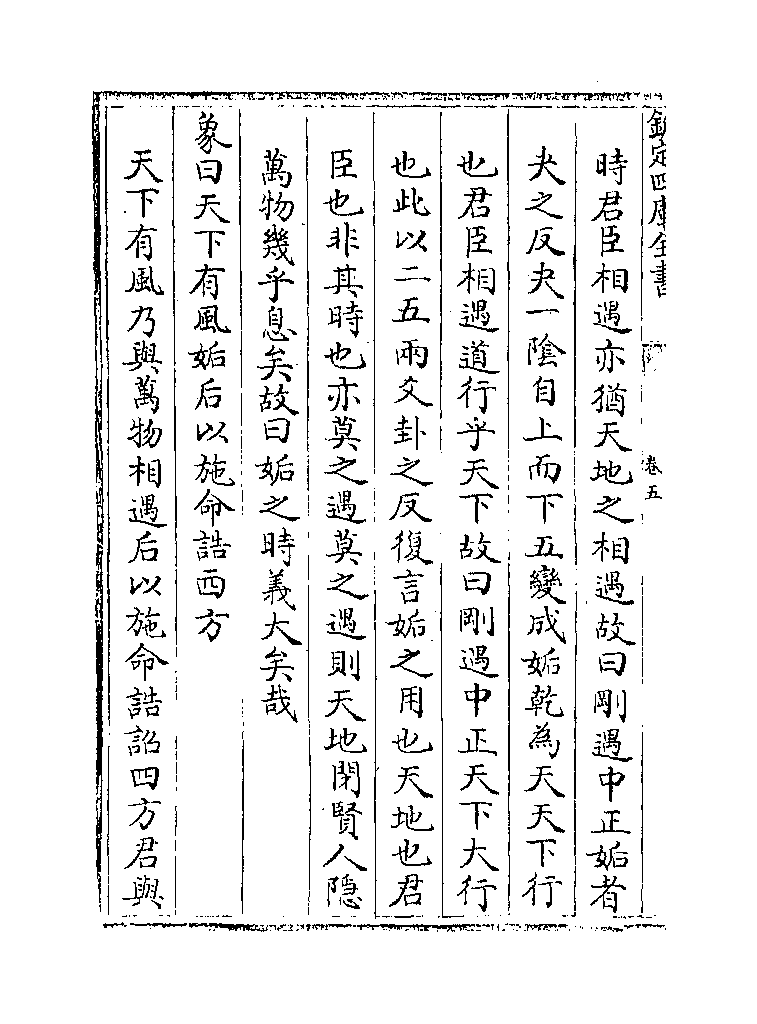 欽定四庫全書
卷五
時君臣相遇亦猶天地之相遇故曰剛遇中正姤者
夬之反夬一陰自上而下五變成姤乾為天天下行
也君臣相遇道行乎天下故曰剛遇中正天下大行
也此以二五兩爻卦之反復言姤之用也天地也君
臣也非其時也亦莫之遇莫之遇則天地閉賢人隱
萬物幾乎息矣故曰姤之時義大矣哉
象曰天下有風姤后以施命誥四方
天下有風乃與萬物相遇后以施命誥詔四方君與